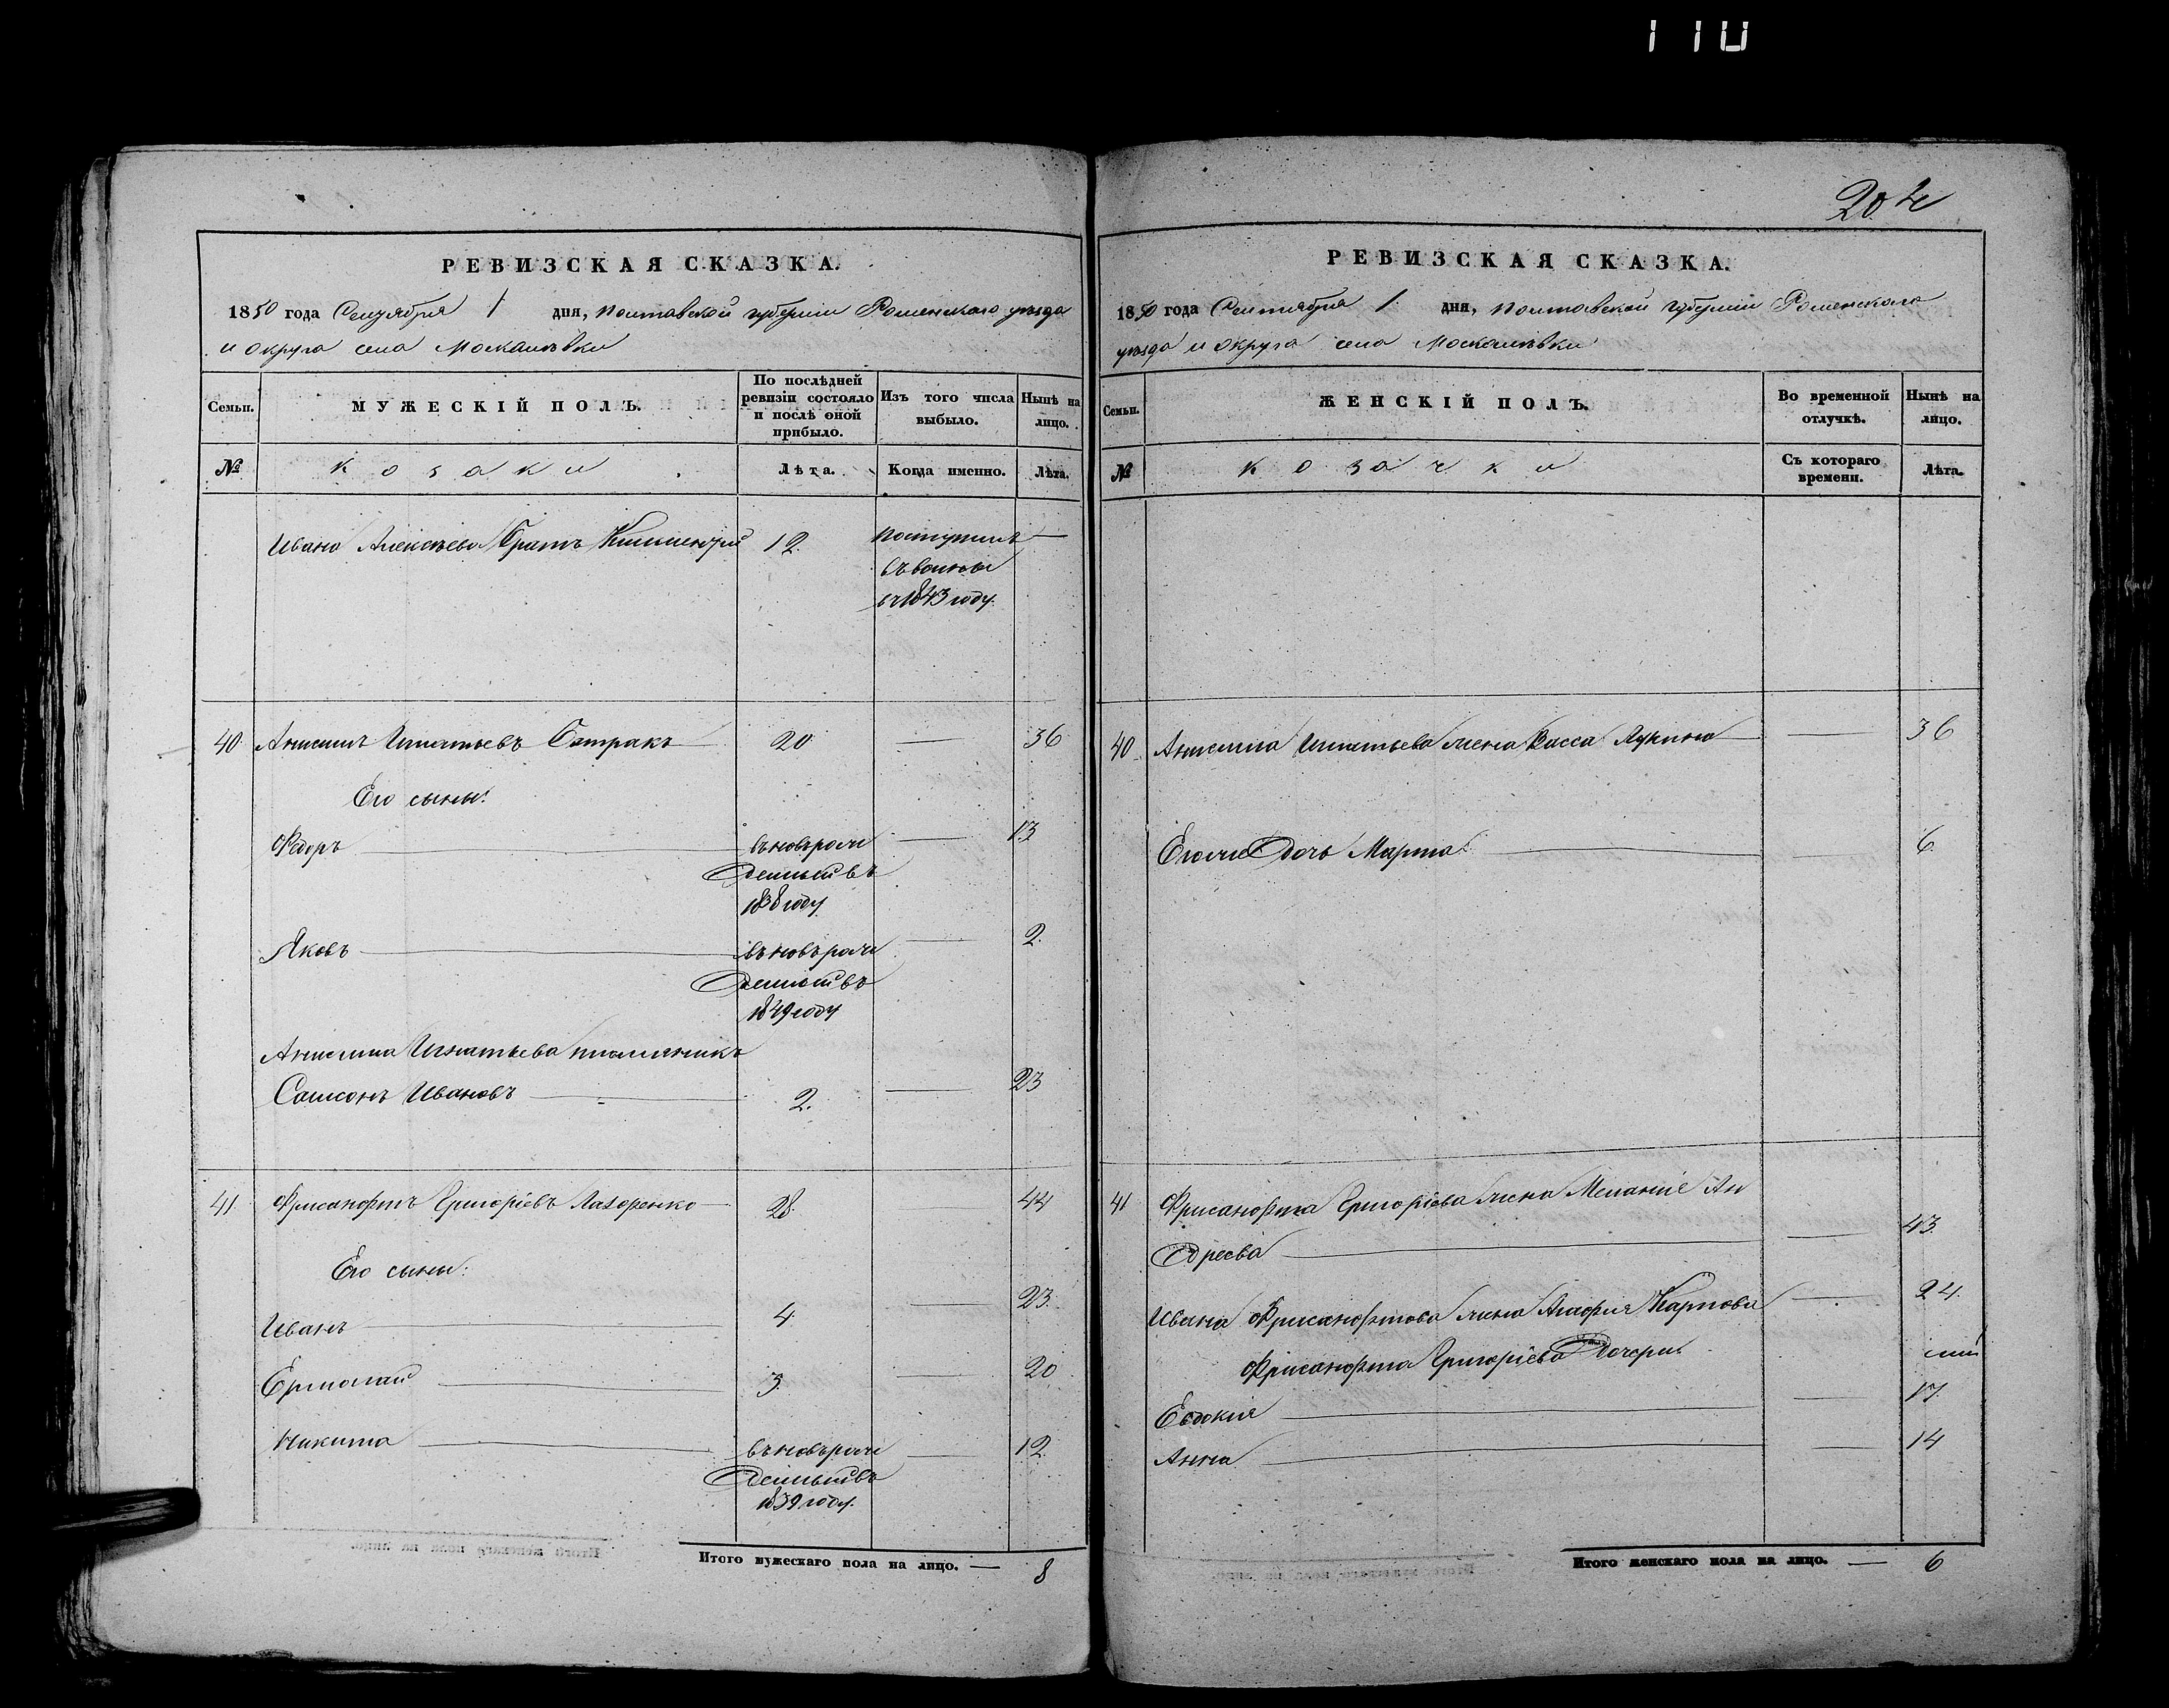 110
204
РЕВИЗСКАЯ СКАЗКА.
1850 года Сентября 1 дня, Полтавской губернии Роменскаго уезда
и округа села Москалевки
Семьи. МУЖЕСКІЙ ПОЛЪ. По послѣдней ревизіи состояло и послѣ оной прибыло. Изъ того числа выбыло. Нынѣ на лицо.
№ козаки Лѣта. Когда именно. Лѣта.
Ивана Алексѣева братъ 12. поступилъ —
въ
въ 1843 году.
40 Анисимъ Игнатьевъ 20 — 36
Его сыны:
Федоръ — въновь рож — 13
денный въ
1838 году
Яковъ — въновь рож — 2.
денный въ
1849 году
Анисима Игнатьева племяникъ
Самсонъ Ивановъ — 2. — 23
41 Фрисанфтъ Григоріевъ Лазоренко — 28. 44
Его сыны:
Иванъ — 4. — 23.
Ермолай — 3. — 20
Никита — въновь рож — 12.
денный въ
1839 году.
Итого мужескаго пола на лицо. — 8
РЕВИЗСКАЯ СКАЗКА.
1850 года Сентября 1 дня, Полтавской губернии Роменскаго
уезда и округа села Москалевки
Семьи. ЖЕНСКІЙ ПОЛЪ. Во временной отлучкѣ. Нынѣ на лицо.
№ козачки Съ котораго времени. Лѣта.
40 Анисима Игнатьева жена Васса — 36
Его же дочь Марфа — 6.
41 Фрисанфта Григоріева жена Меланіе Ан
дреева — 43.
Ивана Фрисанфтова жена Агафия Карпова — 24.
Фрисанфта Григоріева дочери:
Евдокия — 17.
Анна — 14
Итого женскаго пола на лицо. — 6